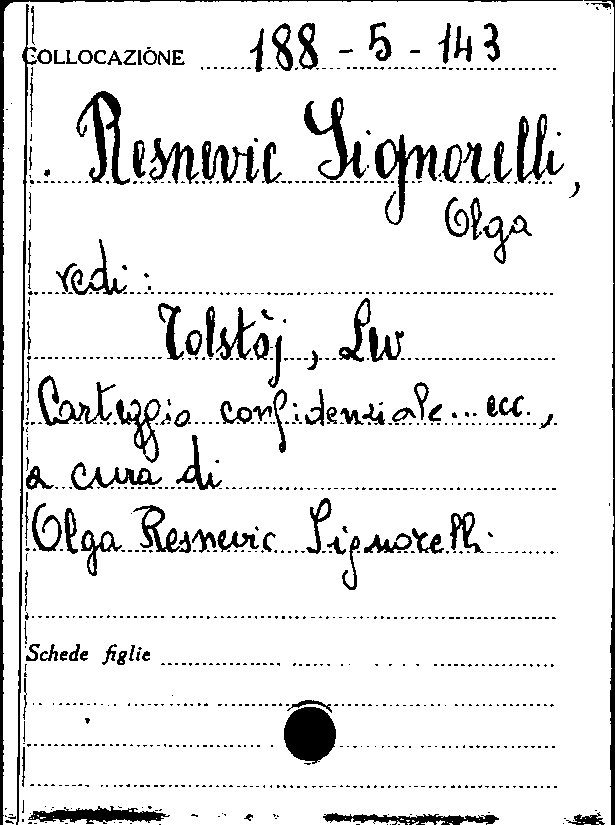 COLLOCAZIÓNE 188 - 5 - 143
. Resnevic Signorelli,
Olga
vedi :
Tolstòj, Lev
Carteggio confidenziale... ecc.,
a cura di
Olga Resnevic Signorelli.
Schede figlie